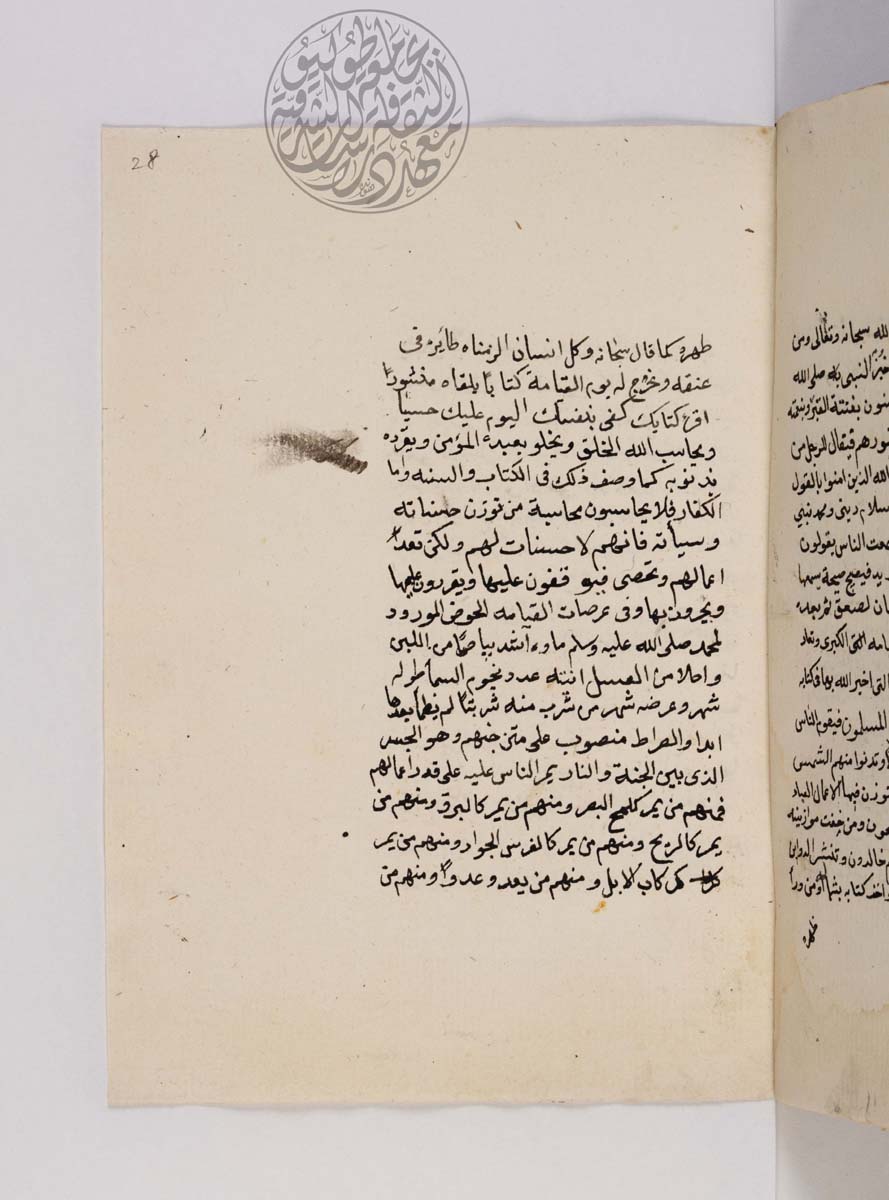 28
ظهره كما قال سبحانه وكل انسان الزمناه طايره في
عنقه ونخرج له يوم القيامة كتابا يلقاه منشورا
اقرء كتابك كفى بنفسك اليوم عليك حسيبا
ويحاسب الله الخلق ويخلو بعبده المؤمن ويقرره
بذنوبه كما وصف ذلك في الكتاب والسنه واما
الكفار فلا يحاسبون محاسبة من توزن حسناته
وسيأته فانهم لا حسنات لهم ولكن تعد
اعمالهم وتحصى فيوقفون عليها ويقررون بها
ويجزون بها وفي عرصات القيامه الحوض المورود
لمحمد صلى الله عليه وسلم ماوءه آشد بياضا من اللبن
واحلا من العسل انيته عدد نجوم السما طوله
شهر وعرضه شهر من شرب منه شربتا لم يظما بعدها
ابدا والصراط منصوب على متن جنهم وهو الجسر
الذي بين الجنة والنار يمر الناس عليه على قدر اعمالهم
فمنهم من يمر كلمح البصر ومنهم من يمر كالبرق ومنهم من
يمر كالريح ومنهم من يمر كالفرس الجواد ومنهم من يمر
كركاب الابل ومنهم من يعدو عدوا ومنهم من
الله سبحانه وتعالى ومن
النبي صلى الله
بفتنة القبر
فيقال للرجل من
الله الذين امنوا بالقول
الناس يقولون
فيصيح صيحة يسمعها
التي اخبر الله بها في كتابه
المسلمون فيقوم الناس
وتدنوا منهم الشمس
ومن خفت موازينه
خالدون وتنشر الدواوين
ظهره